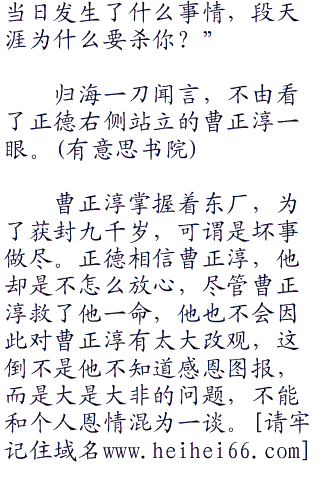 当日发生了什么事情，段天
涯为什么要杀你？”
归海一刀闻言，不由看
了正德右侧站立的曹正淳一
眼。(有意思书院)
曹正淳掌握着东厂，为
了获封九千岁，可谓是坏事
做尽。正德相信曹正淳，他
却是不怎么放心，尽管曹正
淳救了他一命，他也不会因
此对曹正淳有太大改观，这
倒不是他不知道感恩图报，
而是大是大非的问题，不能
和个人恩情混为一谈。[请牢
记住域名www.heihei66.com]